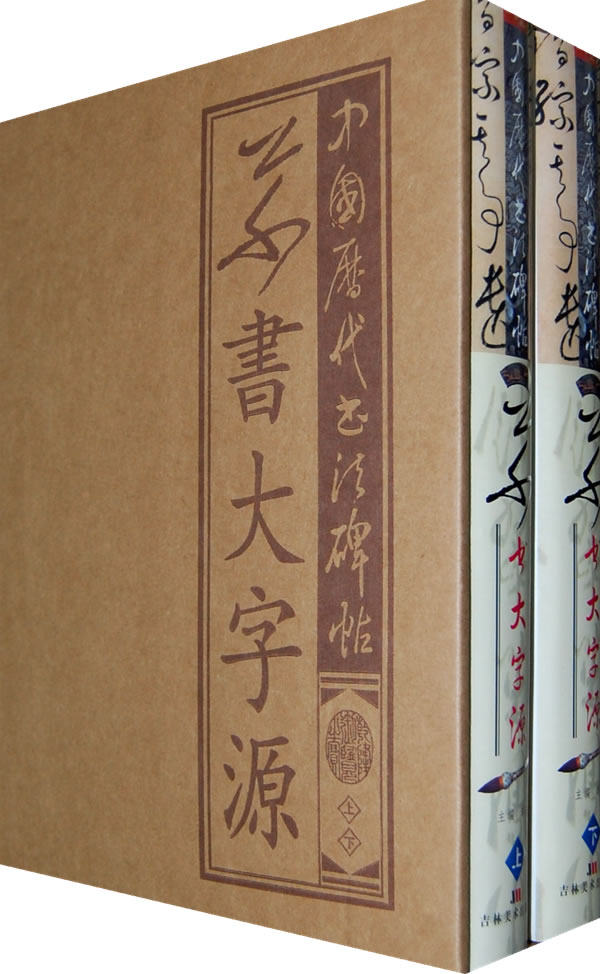 中國历代书法碑帖
草書大字源
上
下
中國历代书法碑帖
草书大字源
主编
上
吉林美术出
中國历代书法碑帖
草书大字源
主编
下
吉林美术